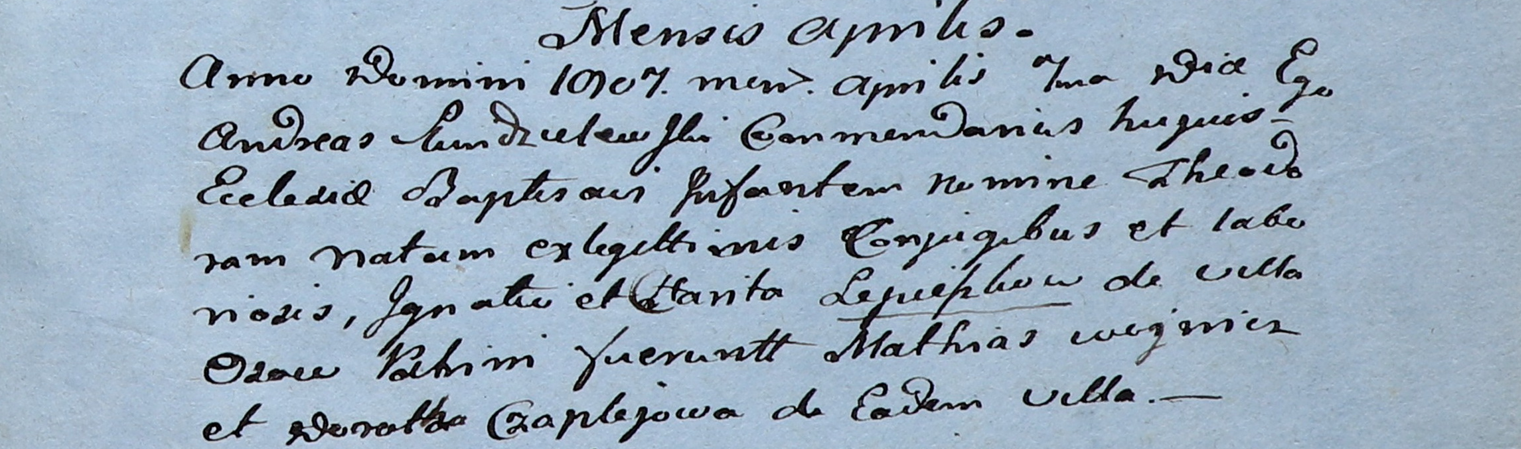 Mensis Aprilis.
Anno Domini 1807. mens. Aprilis 7ma Diæ Ego
Andreas Commendarius hujuis-
Ecclesiæ Baptisavi Infantem nomine Theodo
ram natam ex legittimis Conjugibus et labo
riosis, Ignatii et Clarita de villa
Patrini fueruntt Mathias
et Dorotha Czaplejowa de Eadem villa.—